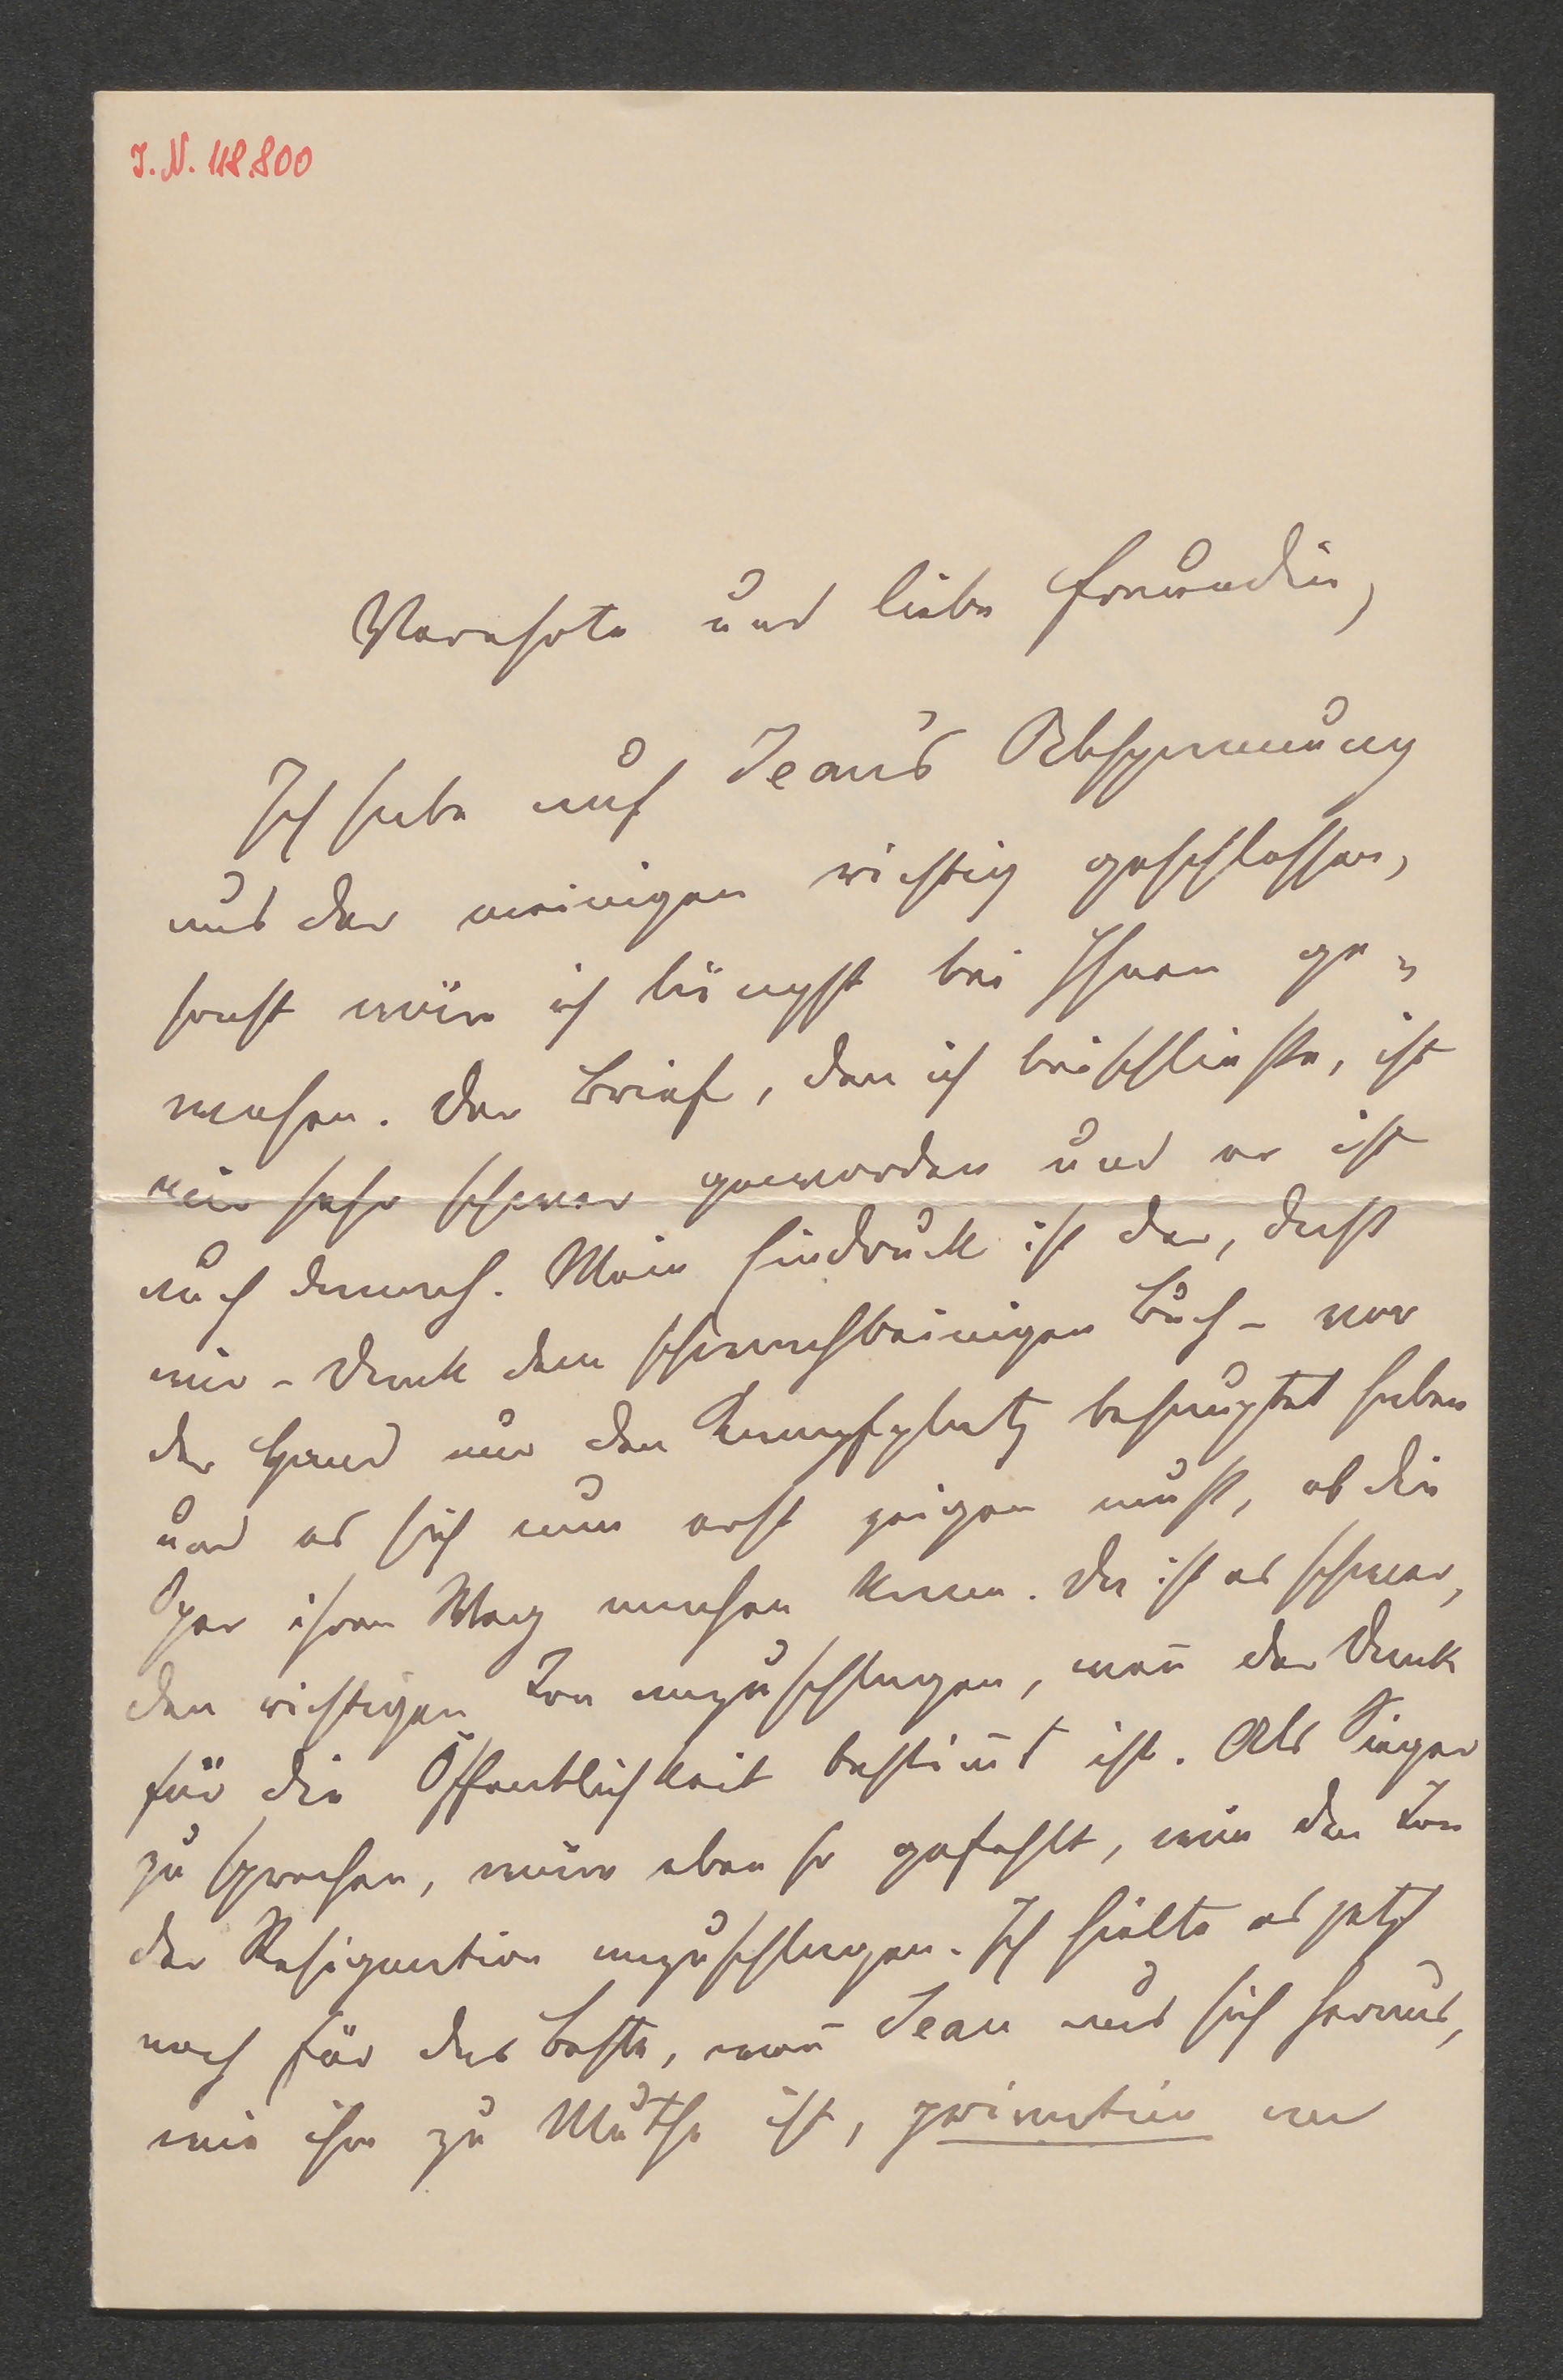 I. N. 118.800
Verehrte und liebe Freundin,
Ich habe auf Jean's Abspannung
aus der meinigen richtig geschlossen,
sonst wäre ich längst bei Ihnen ge=
wesen. Der Brief, den ich beischließe, ist
mir sehr schwer geworden und er ist
auch danach. Mein Eindruck ist der, daß
wir – dank dem schwachbeinigen Buch – vor
der Hand nur den Kampfplatz behauptet haben
und es sich nun erst zeigen muß, ob die
Oper ihren Weg machen kann. Da ist es schwer,
den richtigen Ton anzuschlagen, wen̄ der Dank
für die Öffentlichkeit bestim̄t ist. Als Sieger
zu sprechen, wäre eben so gefehlt, wie den Ton
der Resignation anzuschlagen. Ich hielte es jetzt
noch für das Beste, wen̄ Jean aus sich heraus,
wie ihm zu Muthe ist, privatim an